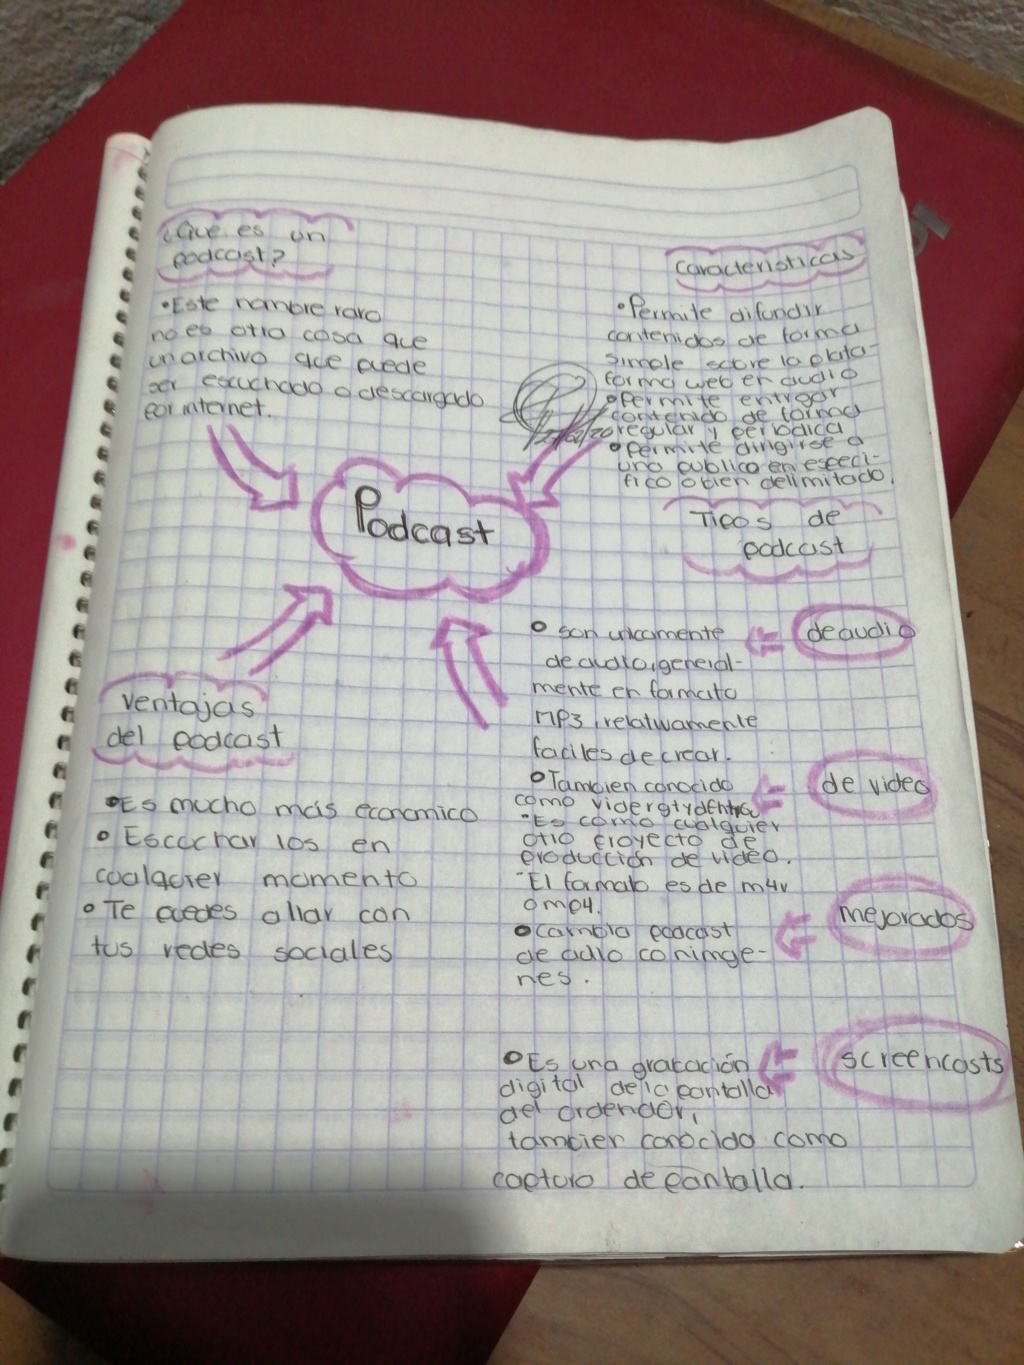 ¿Que es un
podcast?
•Este nombre raro
no es otra cosa que
un archivo que puede
ser escuchado o descargado
por internet.
Caracteristicas
•Permite difundir
contenidos de forma
simple sobre la plata-
forma web en audio
•Permite entregar
contenido de forma
regular y periodica
•Permite dirigirse a
una publico en especi-
fico o bien delimitado.
Podcast
Tipos de
podcast
de audio
• son unicamente
de audio, general-
mente en formato
MP3, relativamente
faciles de crear.
de video
•Tambien conocido
como
-Es como cualquier
otro proyecto de
producción de video.
-El formato es de m4v
o mp4.
mejorados
•cambia podcast
de adio con imge-
nes.
screencasts
•Es una grabación
digital de la pantalla
del ordendor,
tambien conocida como
captura de pantalla.
Ventajas
del podcast
•Es mucho más economico
•Escochar los en
coalquier momento
•Te puedes allar con
tus redes sociales